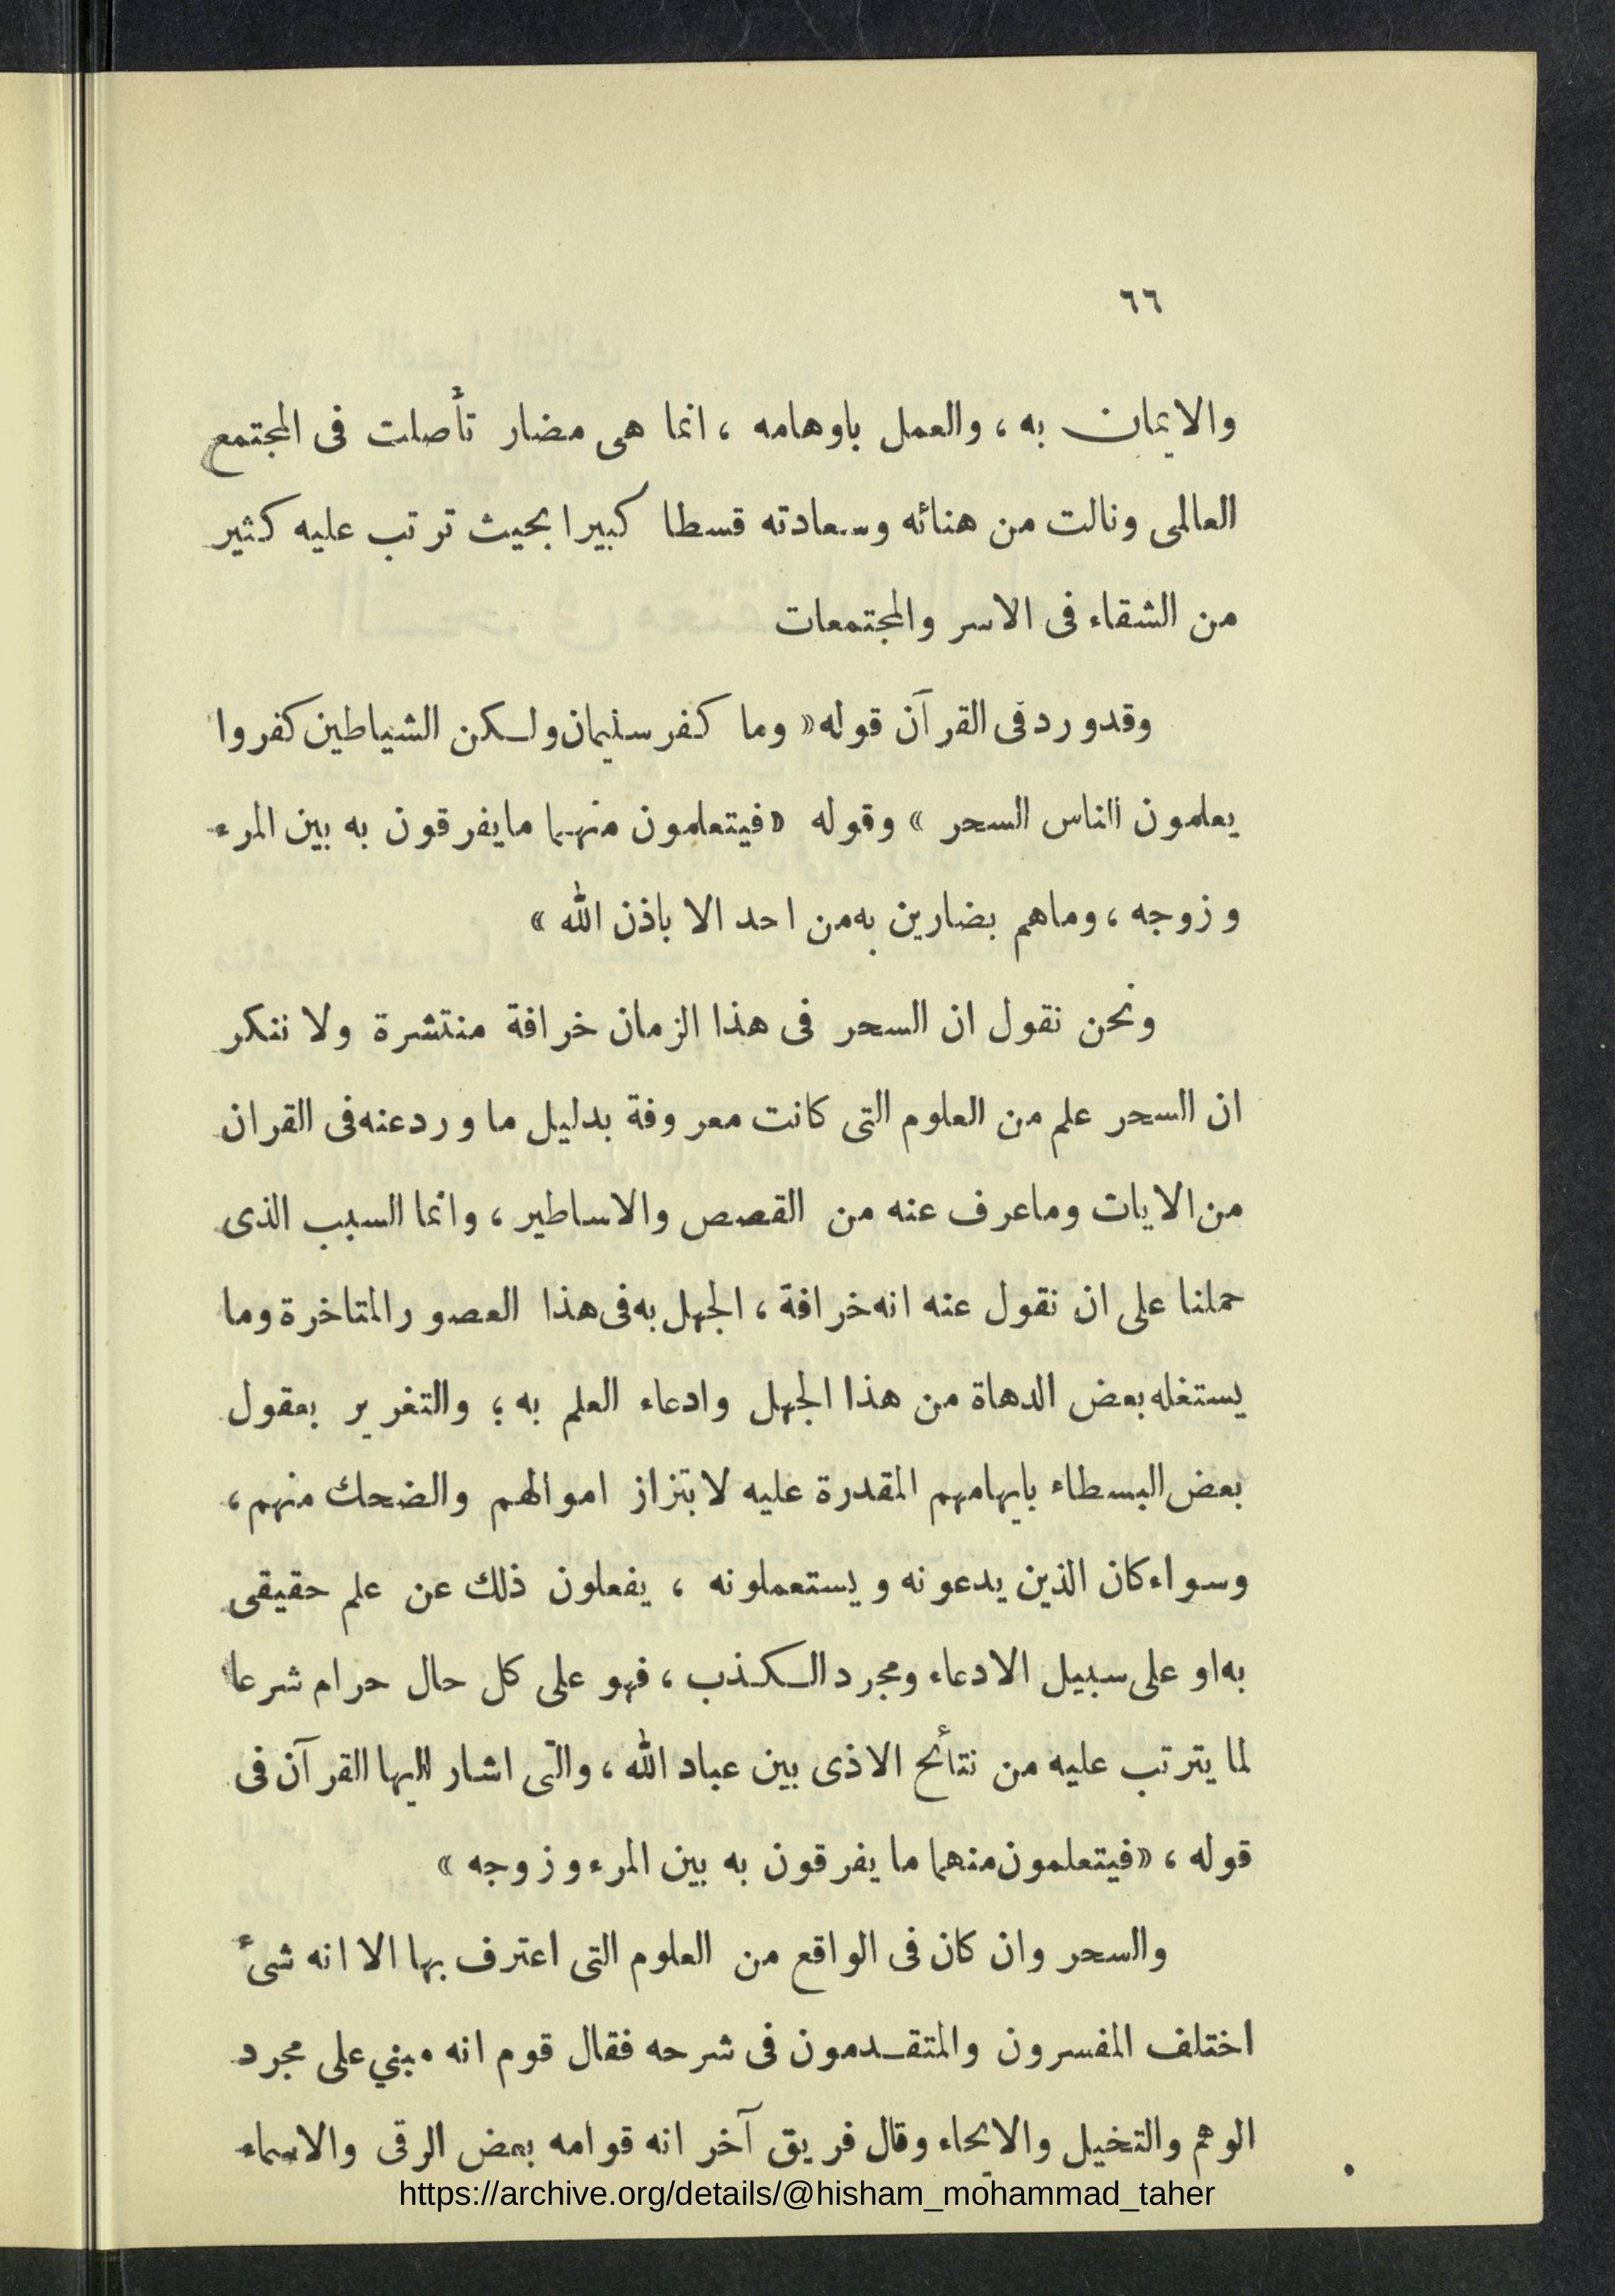 ٦٦
والايمان به ، والعمل باوهامه ، انما هى مضار تأصلت فى المجتمع
العالمى ونالت من هنائه وسعادته قسطا كبيرا بحيث ترتب عليه كثير
من الشقاء فى الاسر والمجتمعات
وقد ورد فى القرآن قوله « وما كفر سليمان ولكن الشياطين كفروا
يعلمون الناس السحر » وقوله « فيتعلمون منهما ما يفرقون به بين المرء
وزوجه ، وما هم بضارين به من احد الا باذن الله »
ونحن نقول ان السحر فى هذا الزمان خرافة منتشرة ولا ننكر
ان السحر علم من العلوم التى كانت معروفة بدليل ما ورد عنه فى القران
من الايات وما عرف عنه من القصص والاساطير ، وانما السبب الذى
حملنا على ان نقول عنه انه خرافة ، الجهل به فى هذا العصور المتاخرة وما
يستغله بعض الدهاة من هذا الجهل وادعاء العلم به ؛ والتغرير بعقول
بعض البسطاء بايهامهم المقدرة عليه لابتزاز اموالهم والضحك منهم ،
وسواء كان الذين يدعونه ويستعملونه ، يفعلون ذلك عن علم حقيقى
به او على سبيل الادعاء ومجرد الكذب ، فهو على كل حال حرام شرعا
لما يترتب عليه من نتأئج الاذى بين عباد الله ، والتى اشار اليها القرآن فى
قوله ، « فيتعلمون منهما ما يفرقون به بين المرء وزوجه »
والسحر وان كان فى الواقع من العلوم التى اعترف بها الا انه شىء
اختلف المفسرون والمتقدمون فى شرحه فقال قوم انه مبني على مجرد
الوهم والتخيل والايحاء وقال فريق آخر انه قوامه بعض الرقى والاسماء
https://archive.org/details/@hisham_mohammad_taher